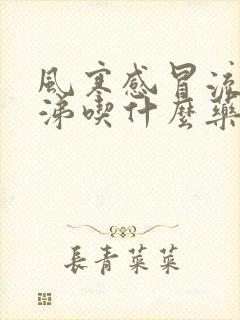 風寒感冒流
涕喫什麼藥
長青菜菜